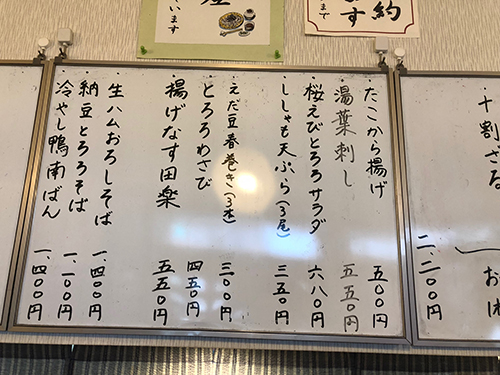 います
約
す
まで
十割ざる
二、二〇〇円
おは
・たこから揚げ 五〇〇円
・湯葉刺し 五五〇円
・桜えびとろろサラダ 六八〇円
・ししゃも天ぷら(3尾) 三五〇円
・えだ豆春巻き(3本) 三〇〇円
・とろろわさび 四五〇円
揚げなす田楽 五五〇円
・生ハムおろしそば 一、四〇〇円
納豆とろろそば 一、一〇〇円
冷やし鴨南ばん 一、四〇〇円